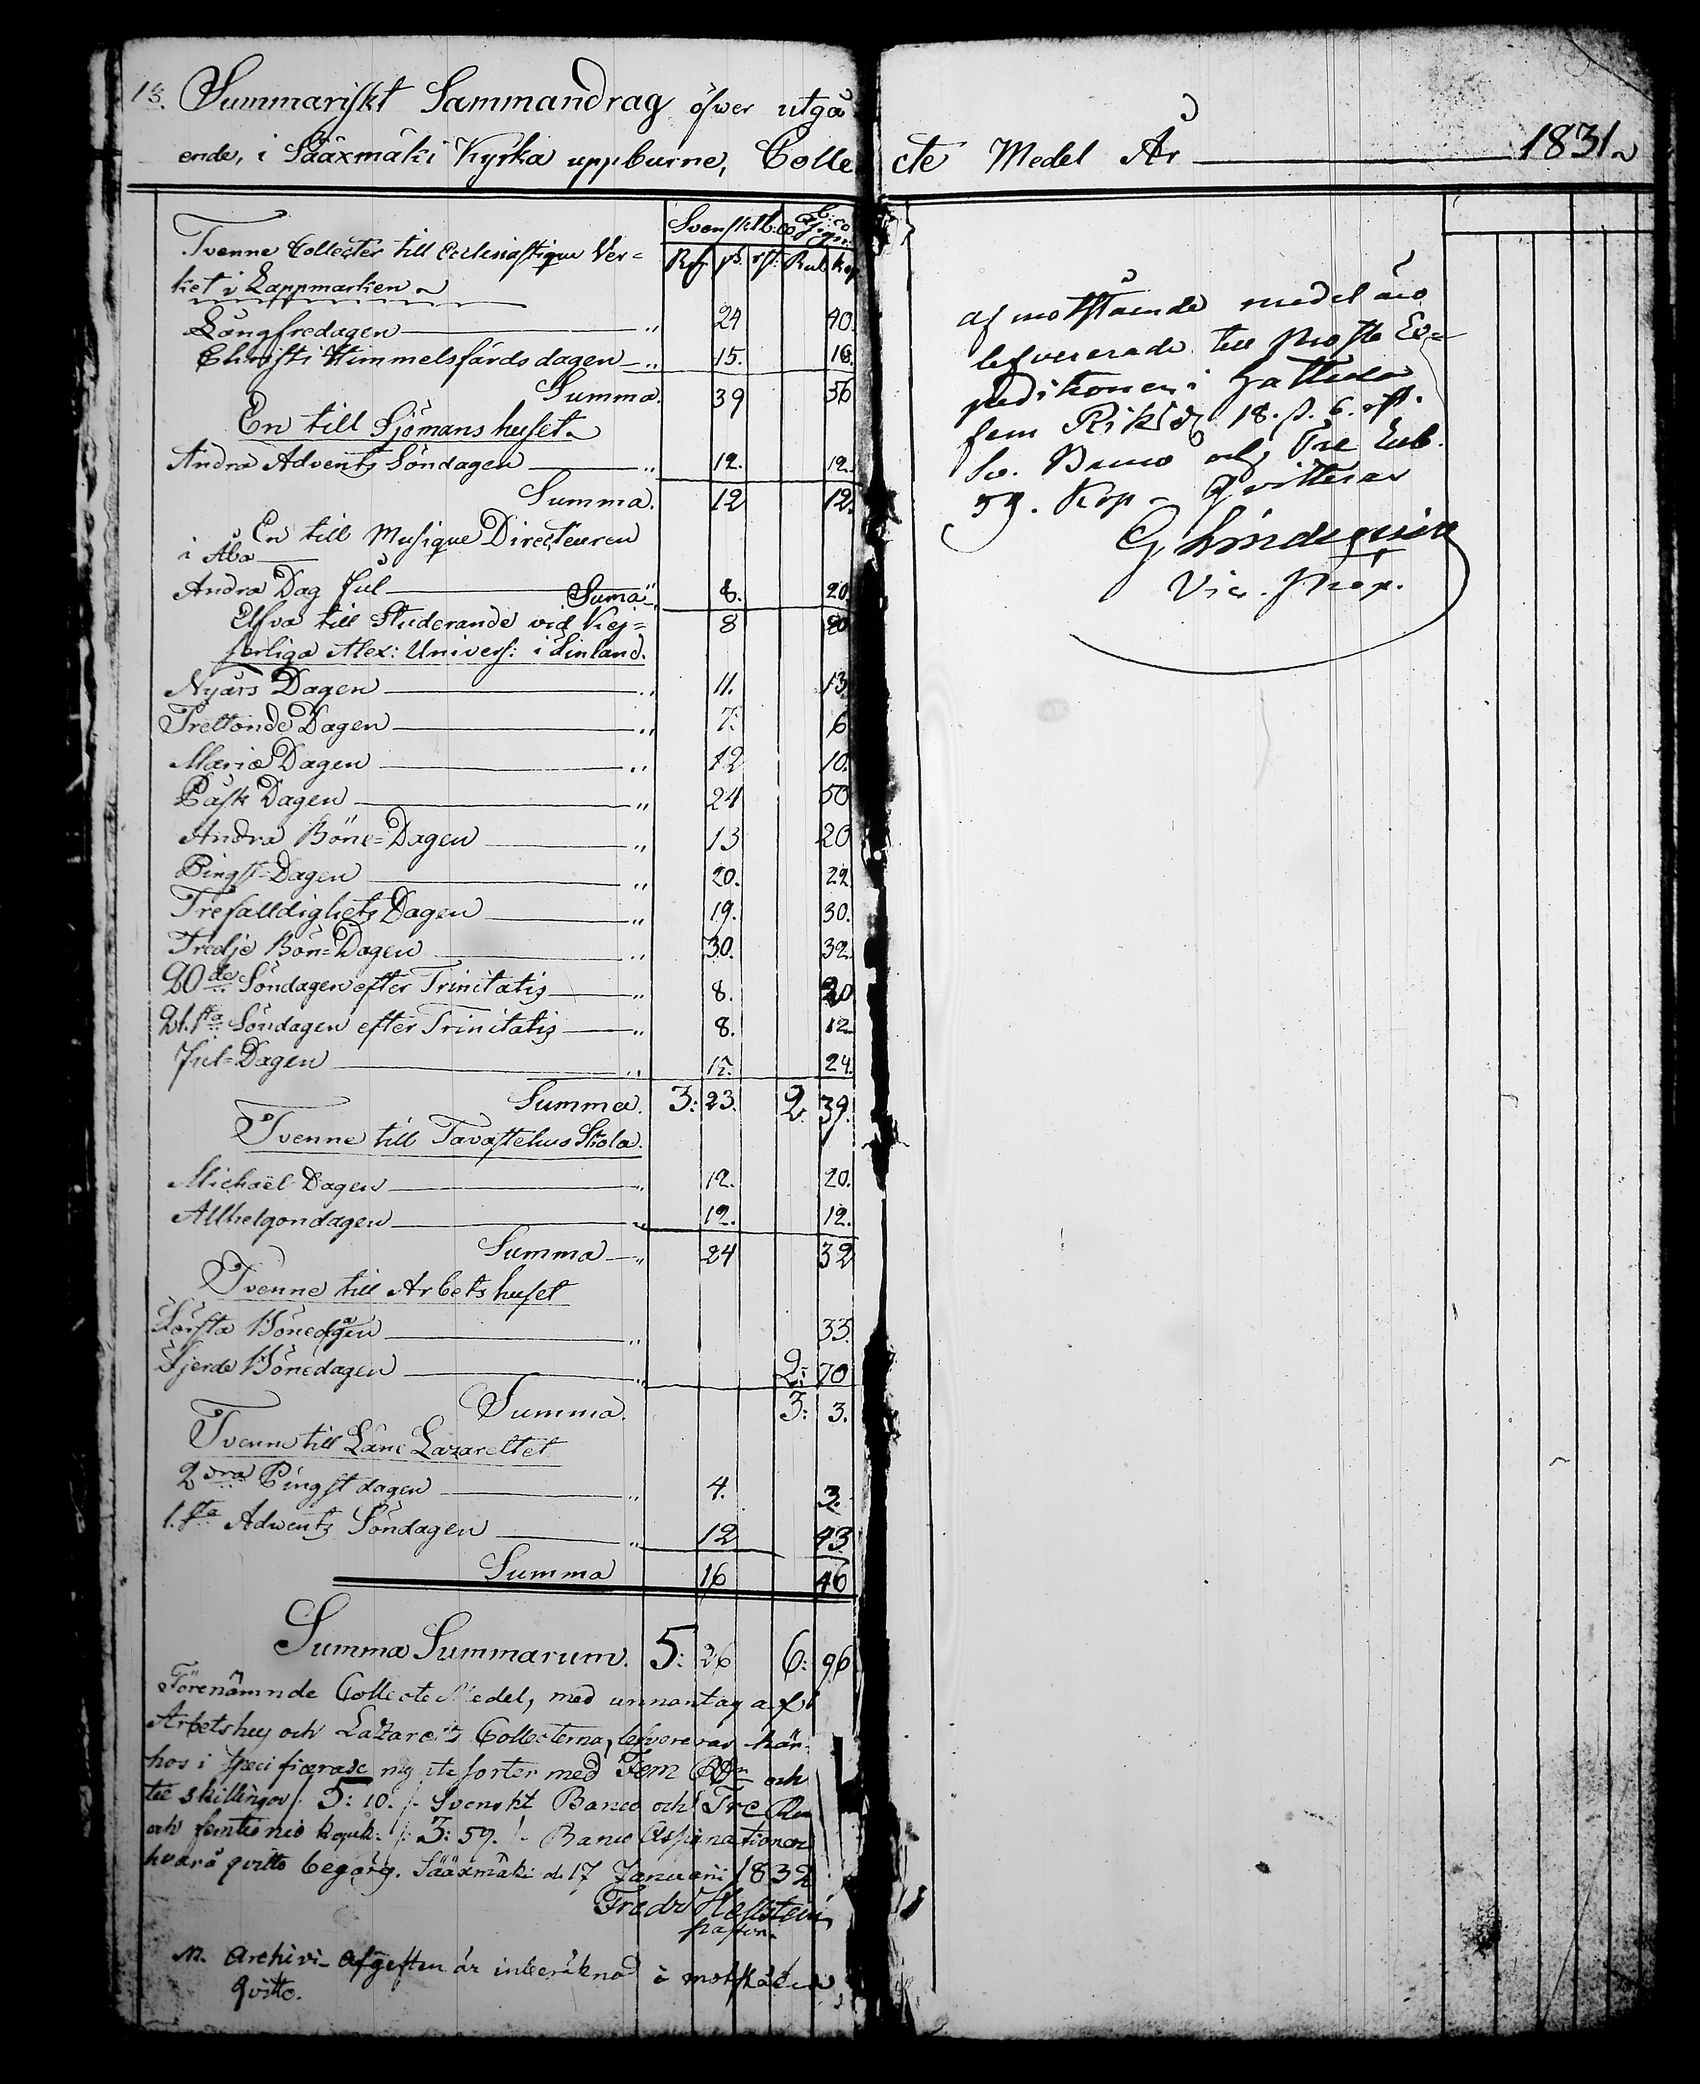 13. Summariskt Sammandrag öfwer utgå
ende, i Sääxmäki Kyrka uppburne, Colle cte Medel År 1831
Svenskt B:co B:co Assign:
Rdr sk. rst. Rub Kop
Tvenne Collecter till Ecclesiastique Ver=
ket i Lappmarken
Långfredagen " 24 40.
Christi Himmelsfärds dagen " 15. 16.
Summa. 39 56
En till Sjömans huset
Andra Advents Söndagen " 12. 12.
Summa. 12 12.
En till Musique Directeuren
i Åbo
Andra Dag Jul Suma 8. 20.
Elfva till Studerande vid Kej= 8 20
serliga Alex: Univers: i Finland.
Nyårs Dagen " 11. 13.
Trettonde Dagen " 7. 6
Mariæ Dagen " 12 10.
Påsk Dagen " 24 50
Andra Böne=Dagen " 13 20
Pingst=Dagen " 20. 22
Trefalldighets Dagen " 19. 30.
Tredje Bön=Dagen " 30. 32.
20de Söndagen efter Trinitatis " 8. 20
21.sta Söndagen efter Trinitatis " 8. 12
Jul=Dagen " 15. 24.
Summa. 3: 23. 2 39.
Tvenne till Tavastehus Skola.
Michaël Dagen " 12. 20.
Allhelgondagen " 12. 12.
Summa " 24 32
Tvenne till Arbetshuset
Första Bönedagen " 33.
Fjerde Bönedagen " 2: 70
Summa. 3: 3.
Tvenne till Läne Lazarettet
2dra Pingstdagen " 4. 3.
1.sta Advents Söndagen " 12 43
Summa 16 46
Summa Summarum. 5: 26 6: 96
Förenämnde Collecte Medel, med unnantag af
Arbetshus och Lazaretts Collecterna, lefvereras här
hos i specificerade mynte sorter med Fem Rdr och
tie skillingar /. 5: 10. /. Svenskt Banco och Tre Ru
och femtio nio kopek: /: 3: 59. /. Banco Assignationer
hvarå qvitto begäres. Sääxmäki d. 17 Januarii 1832
Fredr Hellsten
Pastor.
N. Archivi-Afgeften är inberäknad i motstående
qvitto.
af motstående medel äro
lefvererade till Prosts Ex=
peditionen i Hattula
fem Riksdr 18. s. 6. rst.
Sv. Banco och Tre Rub.
59. Kop - Qvitteras
G Lindequist
Vice. Præp.